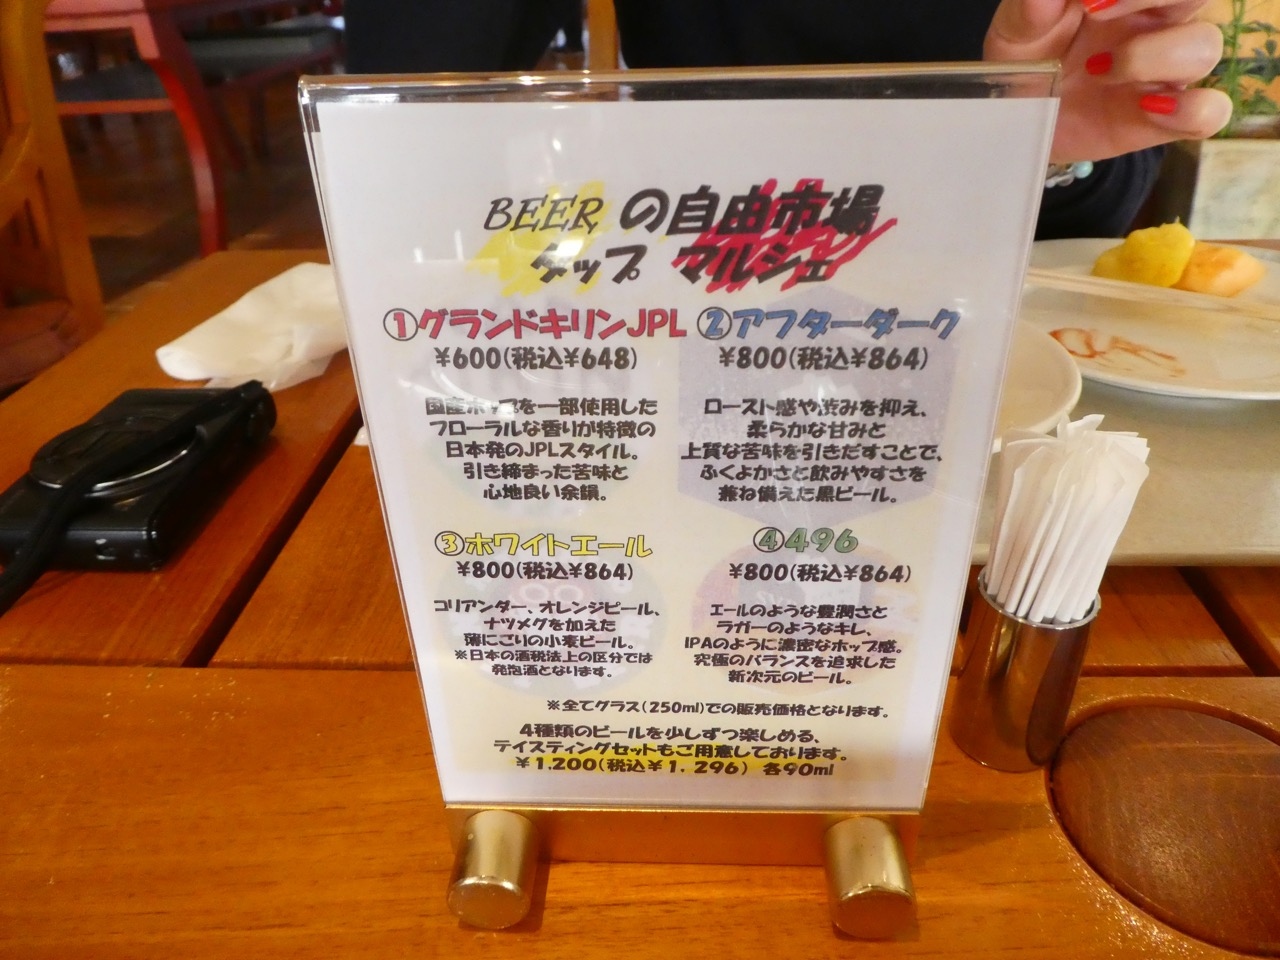 BEERの自由市場
タップ マルシェ
①グランドキリンJPL
¥600(税込¥648)
国産ホップを一部使用した
フローラルな香りが特徴の
日本発のJPLスタイル。
引き締まった苦味と
心地良い余韻。
②アフターダーク
¥800(税込¥864)
ロースト感や渋みを抑え、
柔らかな甘みと
上質な苦味を引きだすことで、
ふくよかさと飲みやすさを
兼ね備えた黒ビール。
③ホワイトエール
¥800(税込¥864)
コリアンダー、オレンジピール、
ナツメグを加えた
薄にごりの小麦ビール。
※日本の酒税法上の区分では
発泡酒となります。
④496
¥800(税込¥864)
エールのような豊潤さと
ラガーのようなキレ、
IPAのように濃密なホップ感。
究極のバランスを追求した
新次元のビール。
※全てグラス(250ml)での販売価格となります。
4種類のビールを少しずつ楽しめる、
テイスティングセットもご用意しております。
¥1,200(税込¥1,296) 各90ml